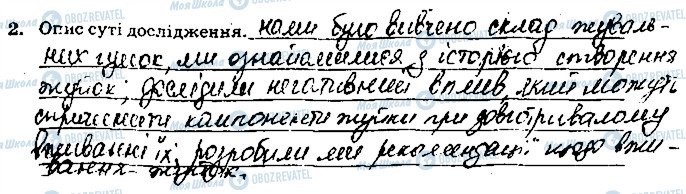 2. Опис суті дослідження. нами було вивчено склад жуваль-
них гумок, ми ознайомилися з історією створення
жуйок; дослідили негативний вплив який можуть
спричинити компоненти жуйки при довготривалому
вживанні їх, розробили ми рекомендації щодо вжи-
вання жуйок.